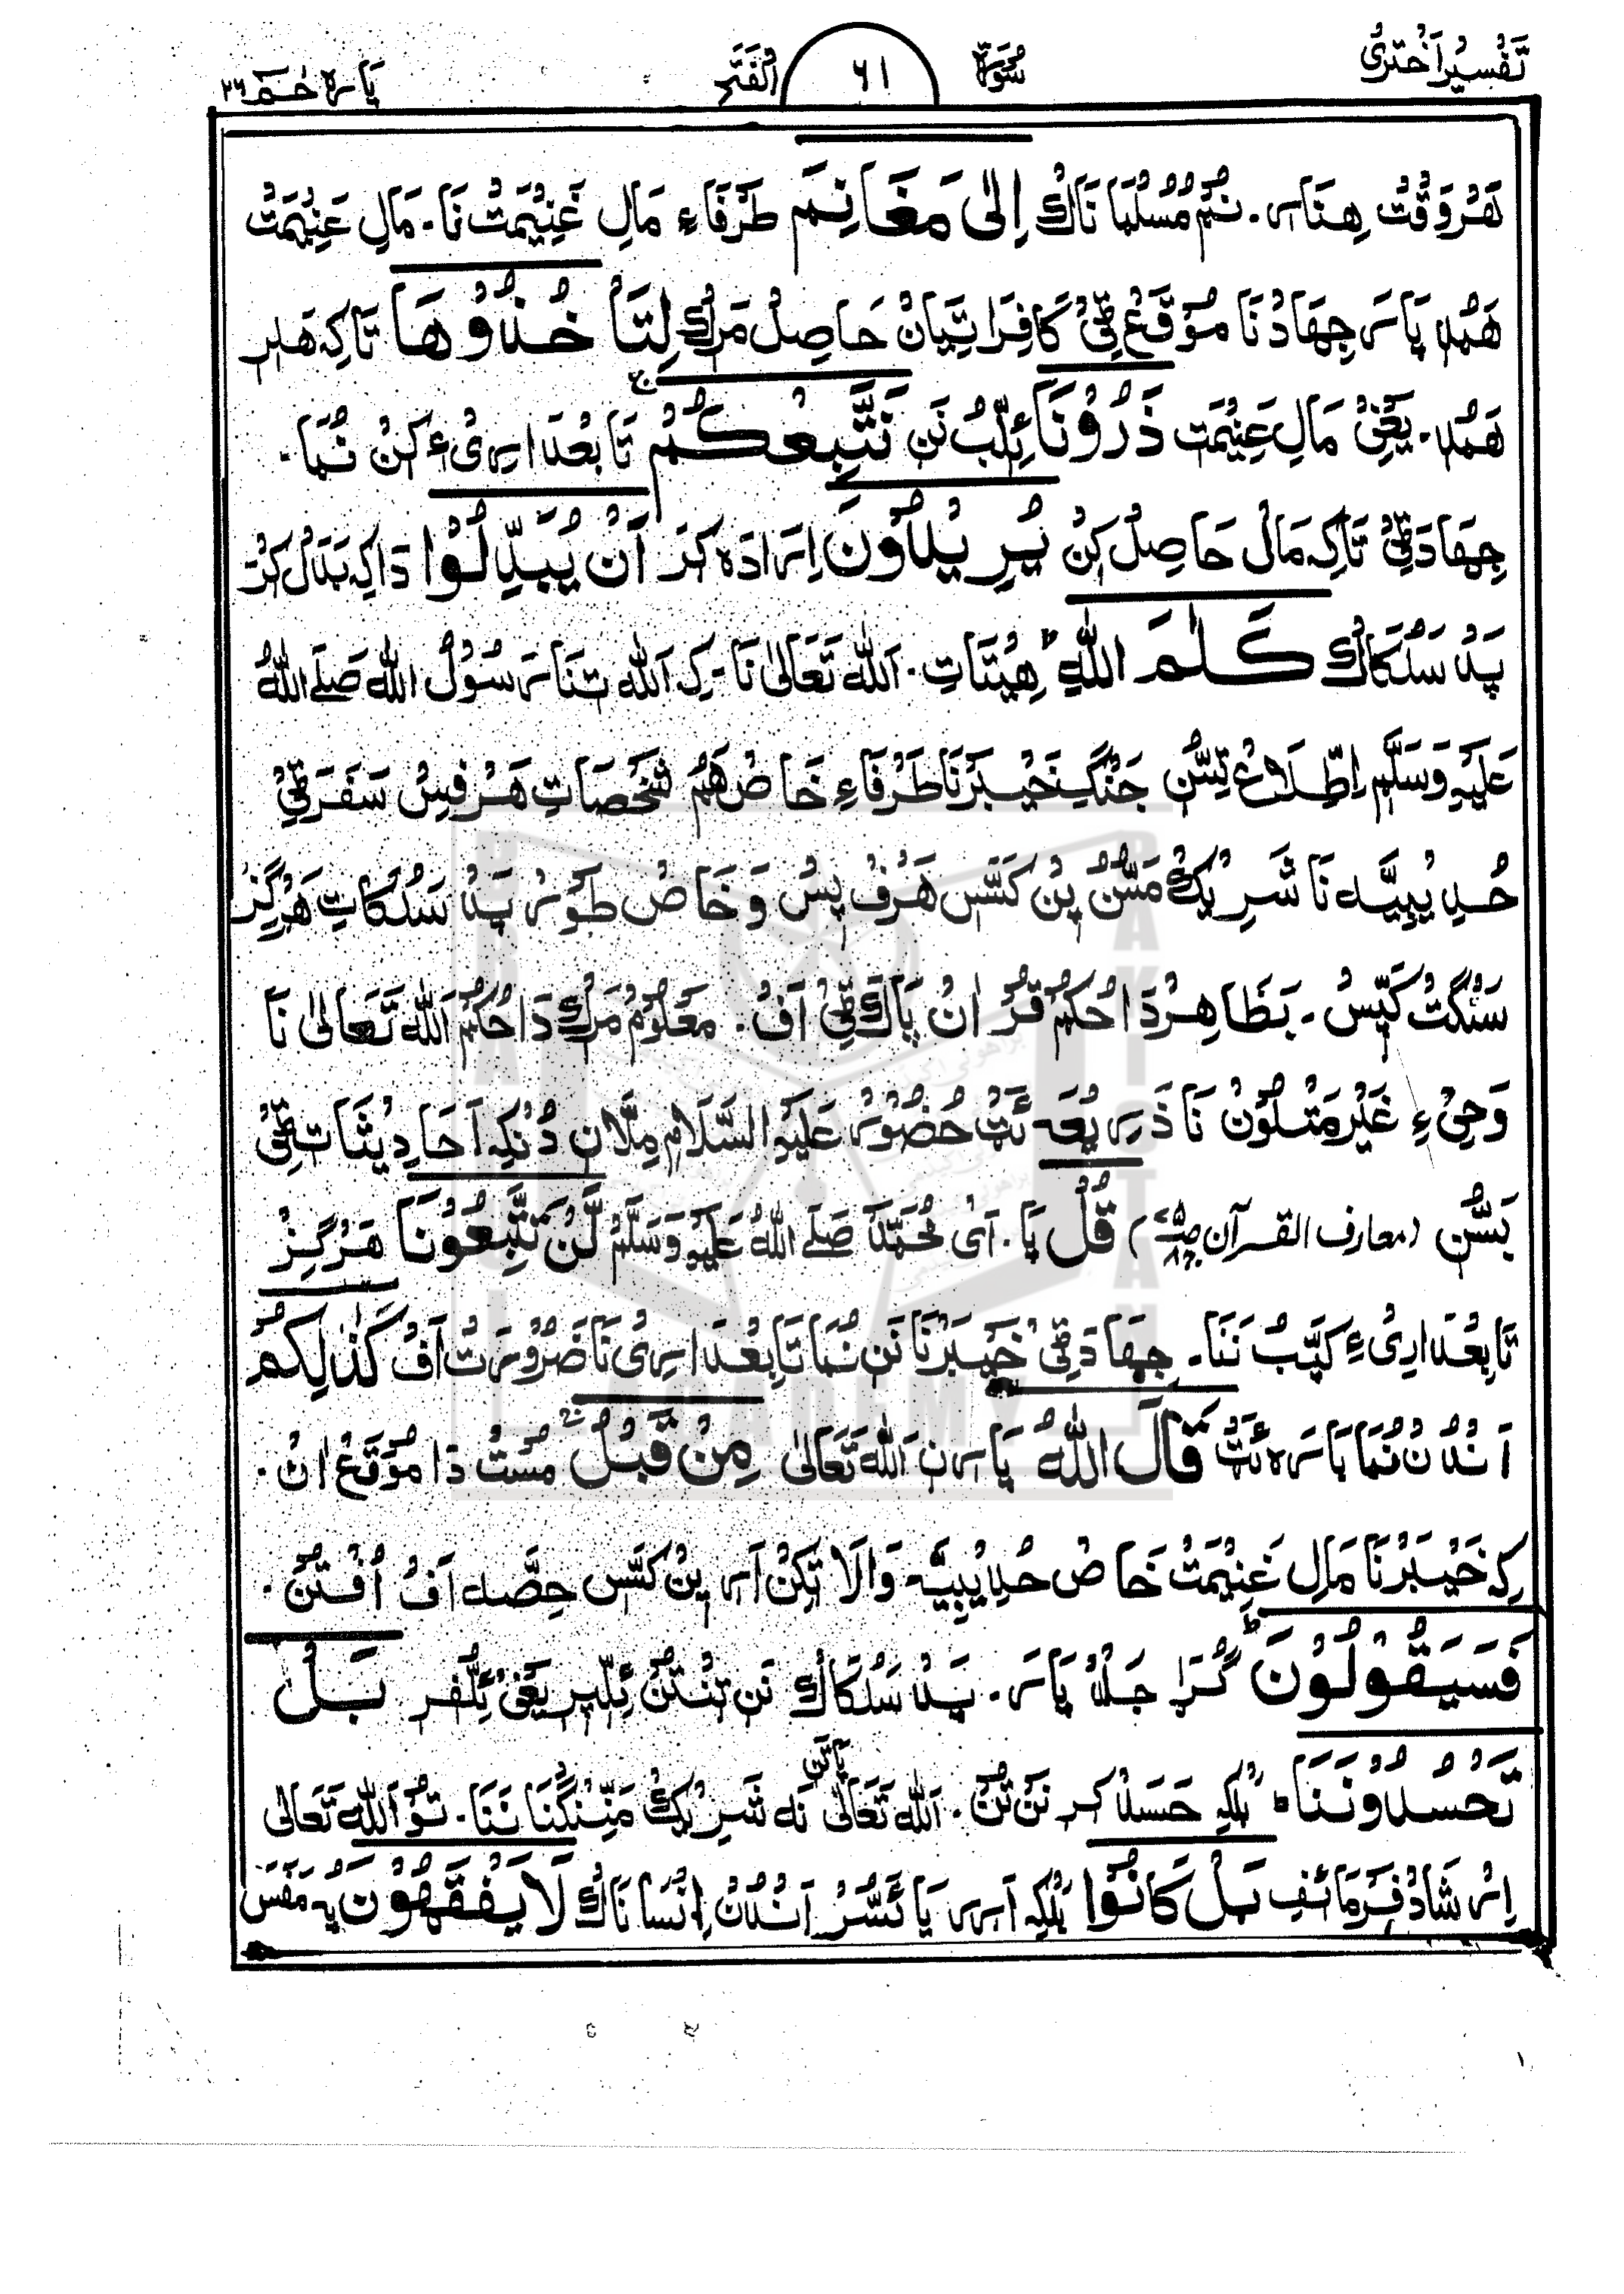 تَفْسِیْرِ اَخْتَرِیْ سُوْرَۃ ۶۱ اَلْفَتَح پَارَہ حٰمٓ ۲۶
ھَرْوَقْتْ ھِنَارے۔ نُمْ مُسُلْمَانَاکْ اِلٰی مَغَانِمَ طَرَفَاءِ مَالِ غَنِیْمَتْ نَا۔ مَالِ غَنِیْمَتْ
ھَمْد پَارَے جِھَادْ نَا مَوْقَعْ ٹِیْ کَافِرَاتِیَانْ حَاصِلْ مَرِکْ لِتَاْخُذُوْھَا تَاکِہ ھَلرِ
ھَمْد۔ یَعْنِیْ مَالِ غَنِیْمَتْ ذَرُوْنَا ئِلّبْ نَنِ نَتَّبِعْکُمْ تَابِعْدَارِیْ ءِ کِنْ نُمَا۔
جِھَادَٹِیْ تَاکِہ مَالْ حَاصِلْ کِنْ یُرِیْدُوْنَ اِرَادَہ کَرَ اَنْ یُّبَدِّلُوْا دَاکِہ بَدَلْ کَرْ
پَدْ سَلْکَاکْ کَلٰمَ اللّٰہِ ھِیْتَاتِ۔ اَللّٰہ تَعَالٰی نَا۔ کِہ اَللّٰہ تِنَا رَسُوْلْ اللّٰہ صَلَے اللّٰہُ
عَلَیْہِ وَسَلَّمِ اِطِّلَاعْ تِسُّنْ جَنْگِ خَیْبَرْنَا طَرْفَاءِ خَاصْ ھَمْ شَخْصَاتِ ھَرْفِیسْ سَفَرَٹِیْ
حُدِیْبِیَّہ نَا شَرِیْکْ مَسُّنْ پِنْ کَسَّس ھَرْفْ پِسْ وَخَاصْ طَوْرْ پَدْ سَلْکَاتِ ھَرْگِزْ
سَنْگَتْ کَپِّسْ۔ بَظَاھِرْ دَا حُکَمْ قُرْاٰنْ پَاکْ ٹِیْ اَفْ۔ مَعْلُوْمْ مَرِکْ دَا حُکَمْ اَللّٰہ تَعَالٰی نَا
وَحِیْ ءِ غَیْر مَتْلُوْنْ نَا ذَرِیْعَہ ئَٹْ حُضُوْرْ عَلَیْہِ السَّلَام مِلَّانِ دُنْکِہ اَحَادِیْثَاتِ ٹِیْ
بَسُّنْ (معارف القرآن) قُلْ پَا۔ اَیْ مُحَمَّدْ صَلَے اللّٰہُ عَلَیْہِ وَسَلَّمْ لَّنْ تَتَّبِعُوْنَا ھَرْگِزْ
تَابِعْدَارِیْ ءِ کَپَّبْ نَنَا۔ جِھَادَٹِیْ خَیْبَرْنَا نَنِ نُمَا تَابِعْدَارِیْ نَا ضَرُوْرَتْ اَفْ کَذٰلِکُمْ
اَنْدُنْ نُمَا بَارَہ ئَٹْ قَالَ اللّٰہُ پَارِے نِ اَللّٰہ تَعَالٰی مِنْ قَبْلُ مُسْتْ دَا مَوْقَعْ اٰنْ۔
کِہ خَیْبَرْنَا مَالِ غَنِیْمَتْ خَاصْ حُدِیْبِیَّہ وَالَا تِکِنْ اَرے پِنْ کَسَّسِ حِصَّہ اَفْ اُفْتِنْ۔
فَسَیَقُوْلُوْنَ گُرَا جَلْدْ پَارَے۔ پَدْ سَلْکَاکْ نَنِ نُنْتُنْ ئِلِّپِر یَعْنِیْ ئِلّفِر بَلْ
تَحْسُدُوْنَنَا بَلْکِہ حَسَدْ کِرِ نَنْ تُنْ۔ اَللّٰہ تَعَالٰی پَاتَن نَہ شَرِیْکْ مَنِّنْگِنَا نَنَا۔ تَوْ اَللّٰہ تَعَالٰی
اِرْشَادْ فَرْمَائِفِ بَلْ کَانُوْا بَلْکِہ اَرِرے پَائَسُّرْ اَنْدُنْ اِنْسَانَاکْ لَا یَفْقَھُوْنَ پہ مَفَسَ